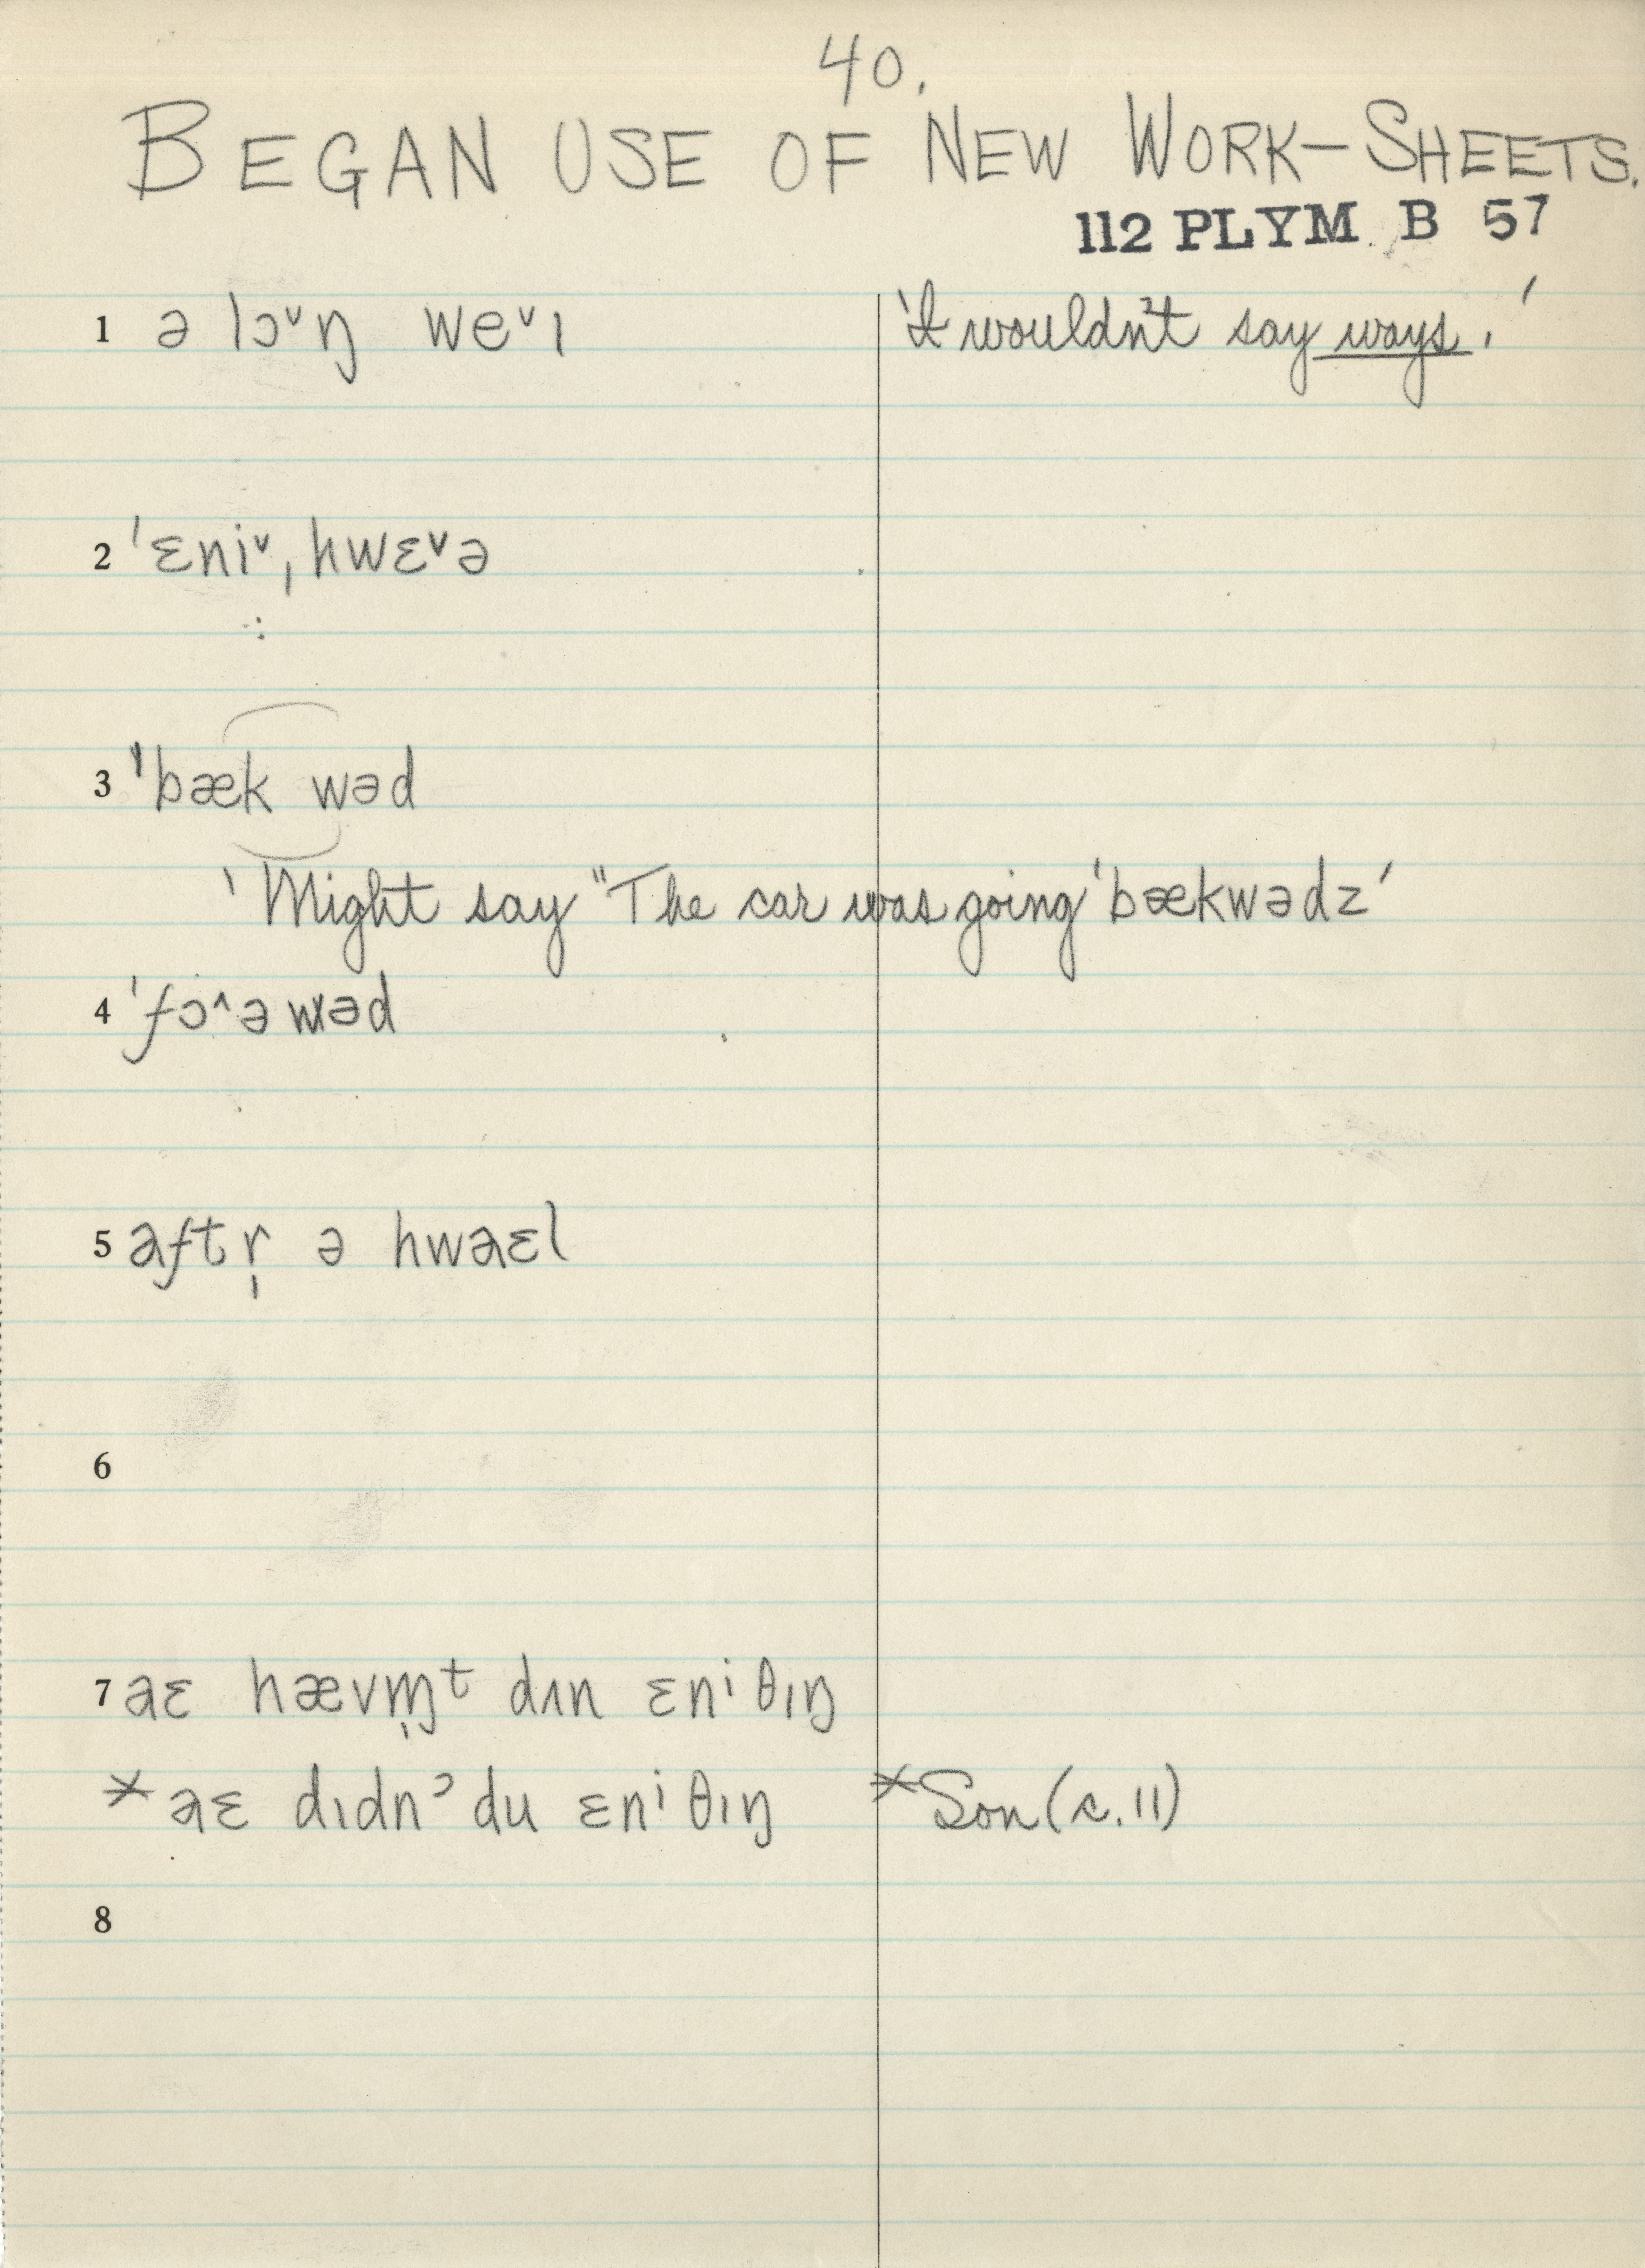 40.
BEGAN USE OF NEW WORK-SHEETS.
112 PLYM B 57
1 ə lɔ˅ŋ we˅ɪ 'I wouldn't say ways.'
2 ˈɛni˅ˌhwɛ˅ə
3 ˈbæk wəd
'Might say "The car was going ˈbækwədz'
4 ˈfɔ^ə wəd
5 aftr̩ ə hwaɛl
6
7 aɛ hævm̩t dʌn ɛniθɪŋ
*aɛ dɪdnʔ du ɛniθɪŋ *Son (c. 11)
8